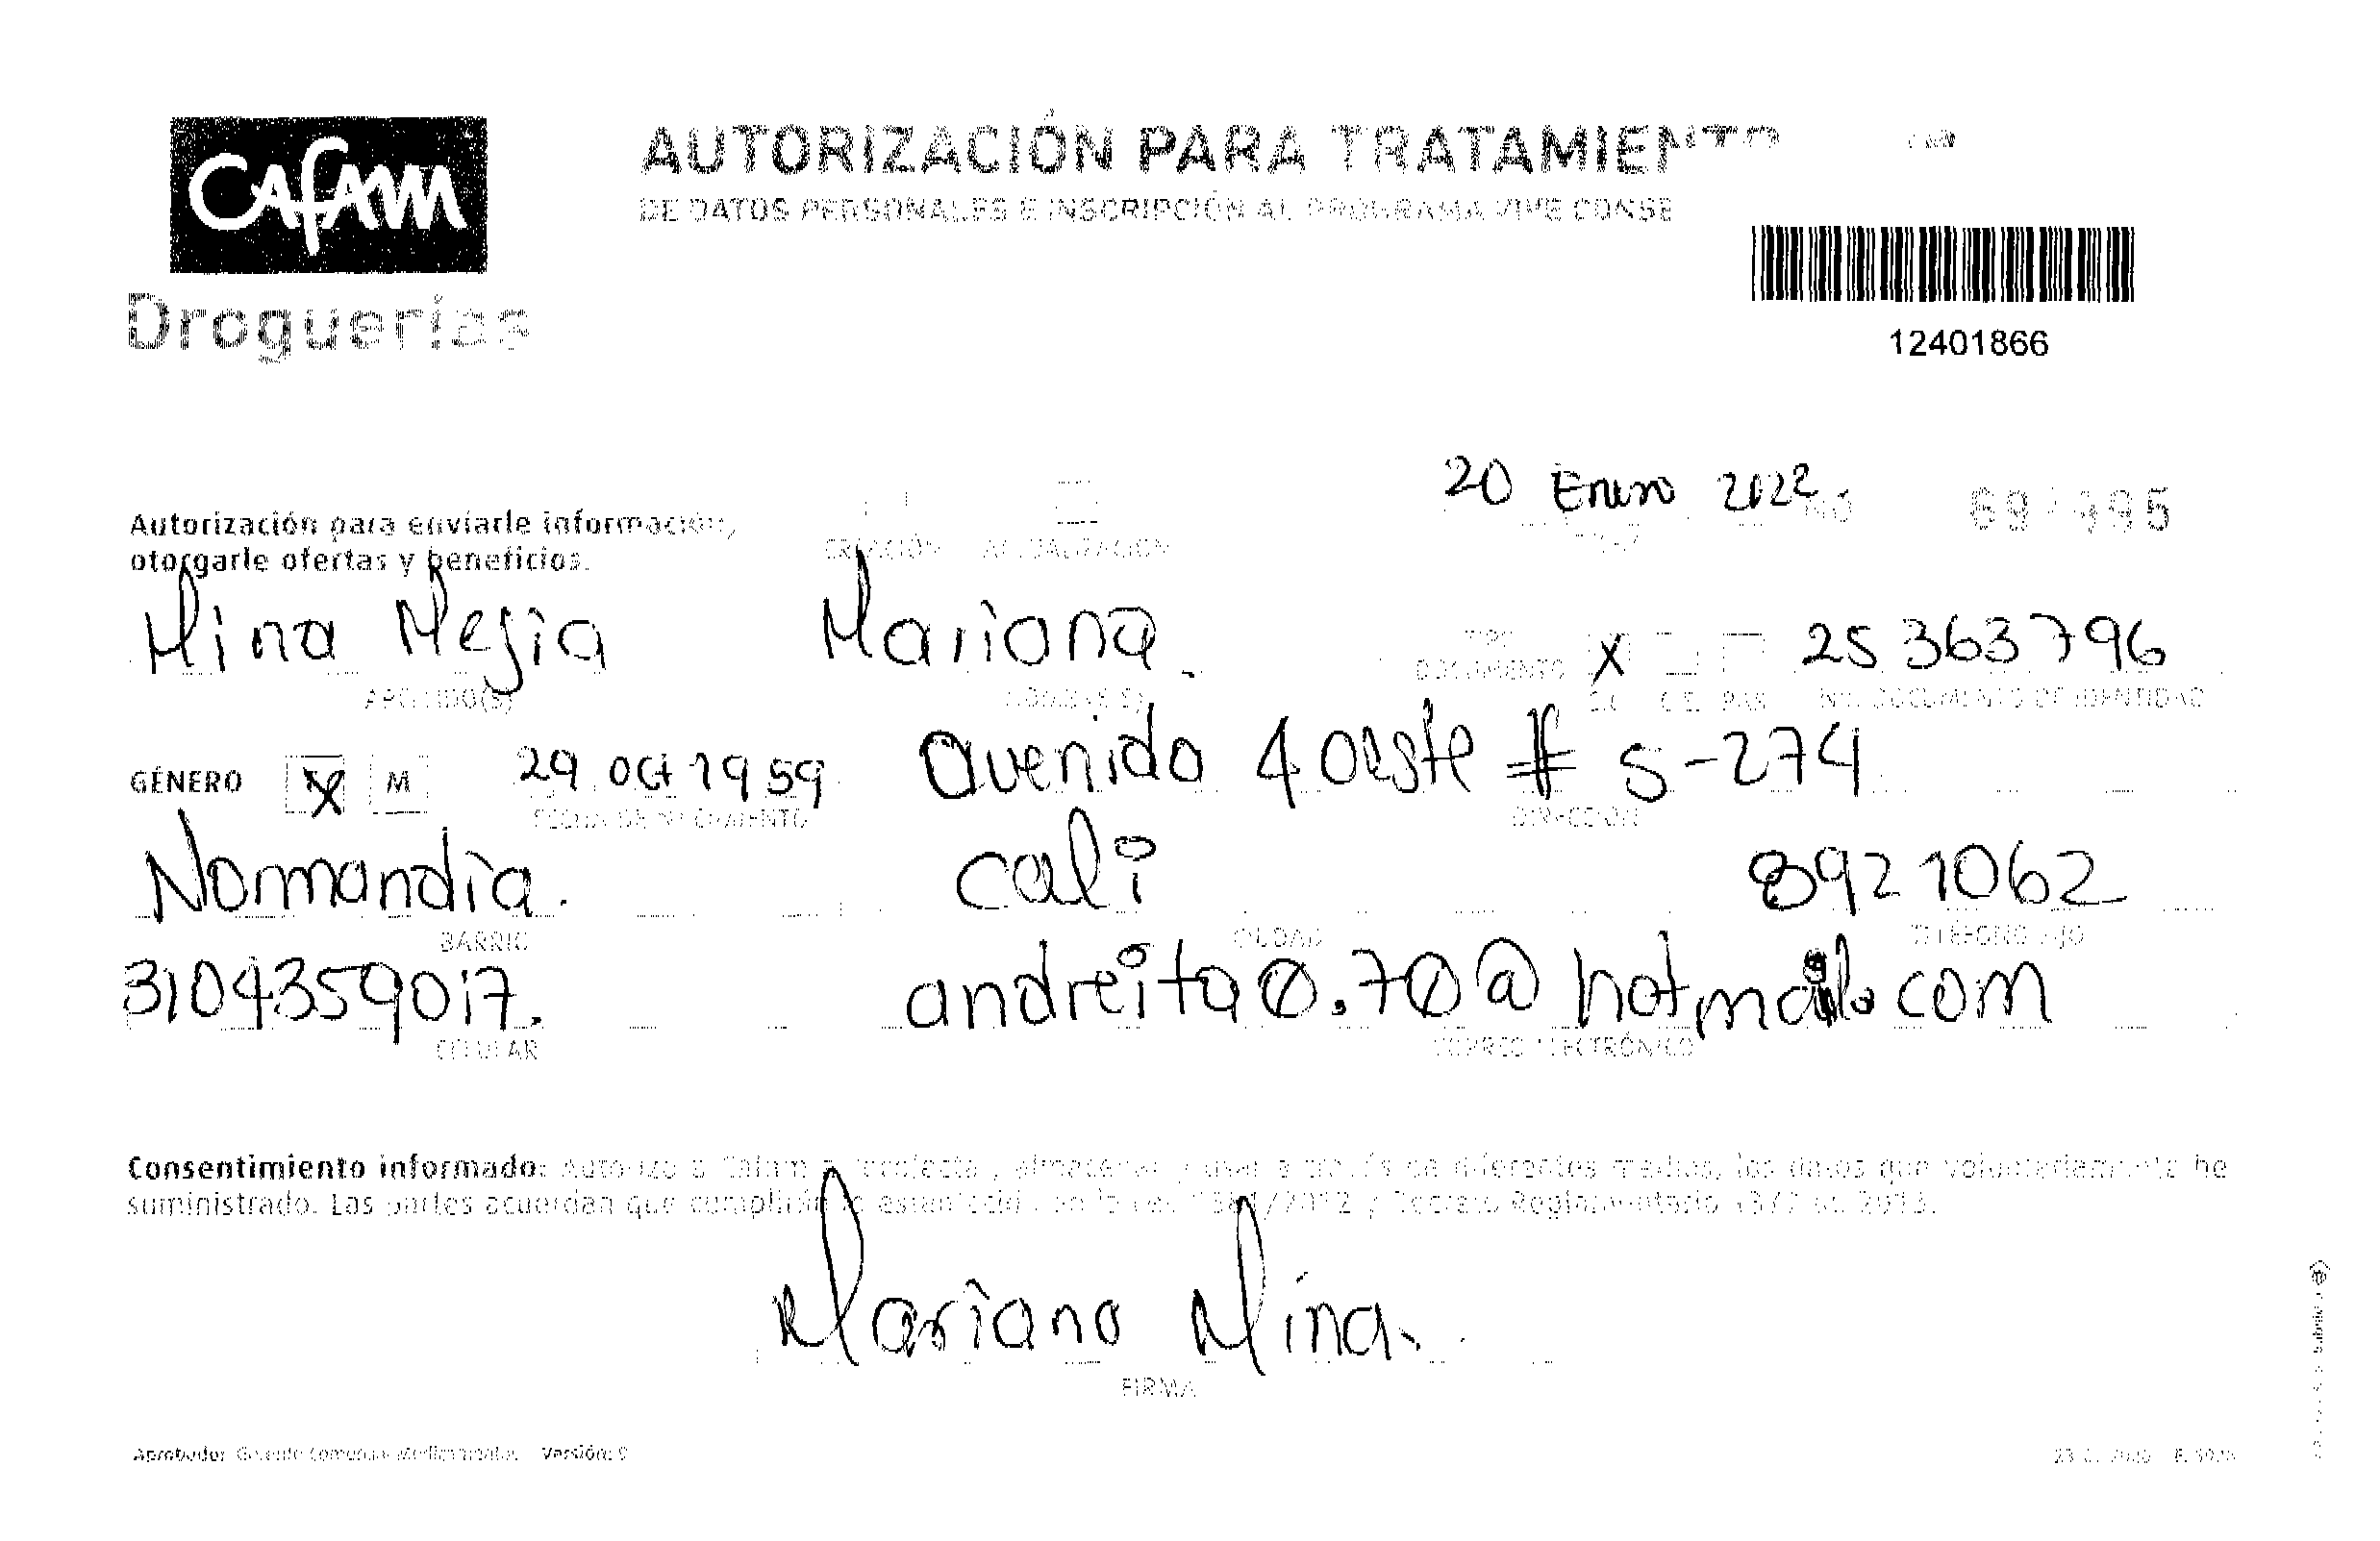 CAFAM
Droguerías
AUTORIZACIÓN PARA TRATAMIENTO
DE DATOS PERSONALES E INSCRIPCIÓN AL PROGRAMA VIVE CONSE
12401866
Autorización para enviarle información,
otorgarle ofertas y beneficios.
CREACIÓN ACTUALIZACIÓN
20 Enero 2022 NO
Mina Mejia Mariana X 25 363 796
APELLIDO(S) NOMBRE(S) TIPO DOCUMENTO C.C. C.E. PAS. NO. DOCUMENTO DE IDENTIDAD
GÉNERO X M 29 Oct 1959 Avenida 4 oeste # 5-274
FECHA DE NACIMIENTO DIRECCIÓN
Normandia. Cali 8921062
BARRIO CIUDAD TELÉFONO FIJO
3104359017. andreita0.70@hotmail.com
CELULAR CORREO ELECTRÓNICO
Consentimiento informado: Autorizo a Cafam a recolectar, almacenar y usar a través de diferentes medios, los datos que voluntariamente he
suministrado. Las partes acuerdan que cumplirán lo establecido en la Ley 1581/2012 y Decreto Reglamentario 1377 de 2013.
Mariana Mina.
FIRMA
Aprobado: Versión: 9